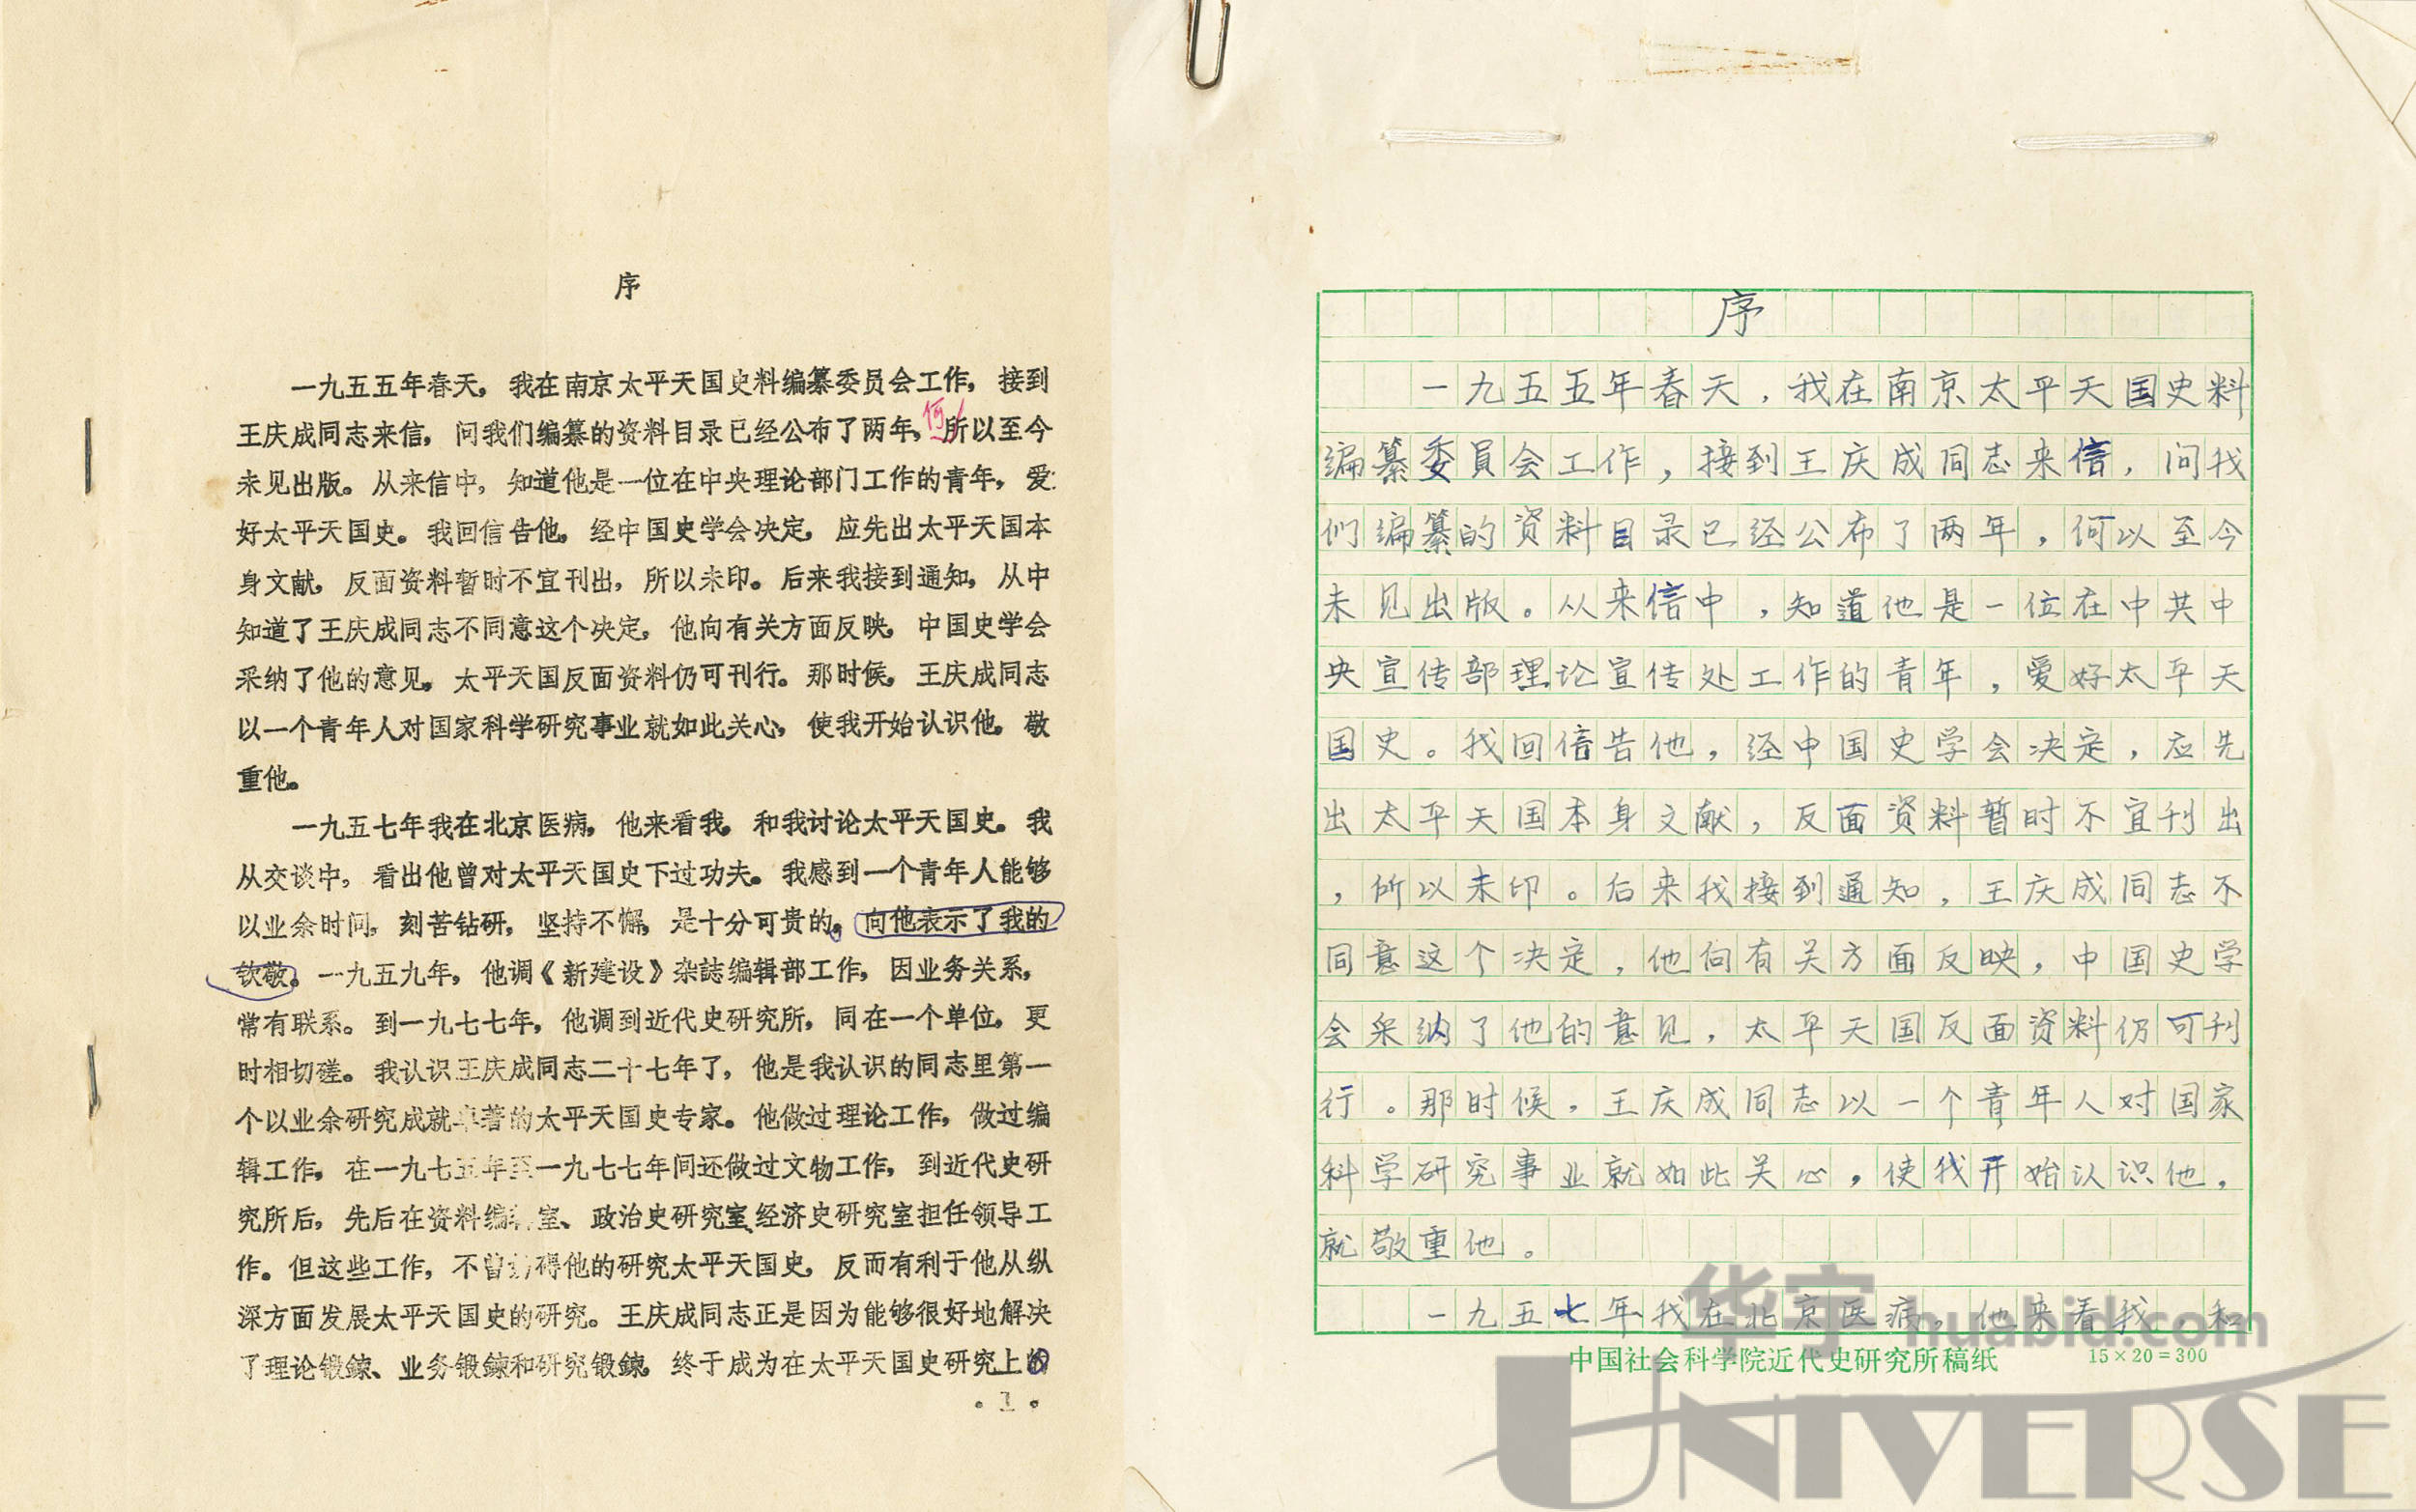 序
一九五五年春天，我在南京太平天国史料编纂委员会工作，接到
王庆成同志来信，问我们编纂的资料目录已经公布了两年，所以至今
何
未见出版。从来信中，知道他是一位在中央理论部门工作的青年，爱
好太平天国史。我回信告他，经中国史学会决定，应先出太平天国本
身文献，反面资料暂时不宜刊出，所以未印。后来我接到通知，从中
知道了王庆成同志不同意这个决定，他向有关方面反映，中国史学会
采纳了他的意见，太平天国反面资料仍可刊行。那时候，王庆成同志
以一个青年人对国家科学研究事业就如此关心，使我开始认识他，敬
重他。
一九五七年我在北京医病，他来看我，和我讨论太平天国史。我
从交谈中，看出他曾对太平天国史下过功夫。我感到一个青年人能够
以业余时间，刻苦钻研，坚持不懈，是十分可贵的，向他表示了我的
钦敬。一九五九年，他调《新建设》杂誌编辑部工作，因业务关系，
常有联系。到一九七七年，他调到近代史研究所，同在一个单位，更
时相切磋。我认识王庆成同志二十七年了，他是我认识的同志里第一
个以业余研究成就卓著的太平天国史专家。他做过理论工作，做过编
辑工作，在一九七五年至一九七七年间还做过文物工作，到近代史研
究所后，先后在资料编辑室、政治史研究室、经济史研究室担任领导工
作。但这些工作，不曾妨碍他的研究太平天国史，反而有利于他从纵
深方面发展太平天国史的研究。王庆成同志正是因为能够很好地解决
了理论锻鍊、业务锻鍊和研究锻鍊，终于成为在太平天国史研究上的
·1·
序
一九五五年春天，我在南京太平天国史料
编纂委員会工作，接到王庆成同志来信，问我
们编纂的资料目录已经公布了两年，何以至今
未见出版。从来信中，知道他是一位在中共中
央宣传部理论宣传处工作的青年，爱好太平天
国史。我回信告他，经中国史学会决定，应先
出太平天国本身文献，反面资料暂时不宜刊出
，所以未印。后来我接到通知，王庆成同志不
同意这个决定，他向有关方面反映，中国史学
会采纳了他的意见，太平天国反面资料仍可刊
行。那时候，王庆成同志以一个青年人对国家
科学研究事业就如此关心，使我开始认识他，
就敬重他。
一九五七年我在北京医病，他来看我，和
中国社会科学院近代史研究所稿纸
15×20=300
华宇 huabid.com
UNIVERSE